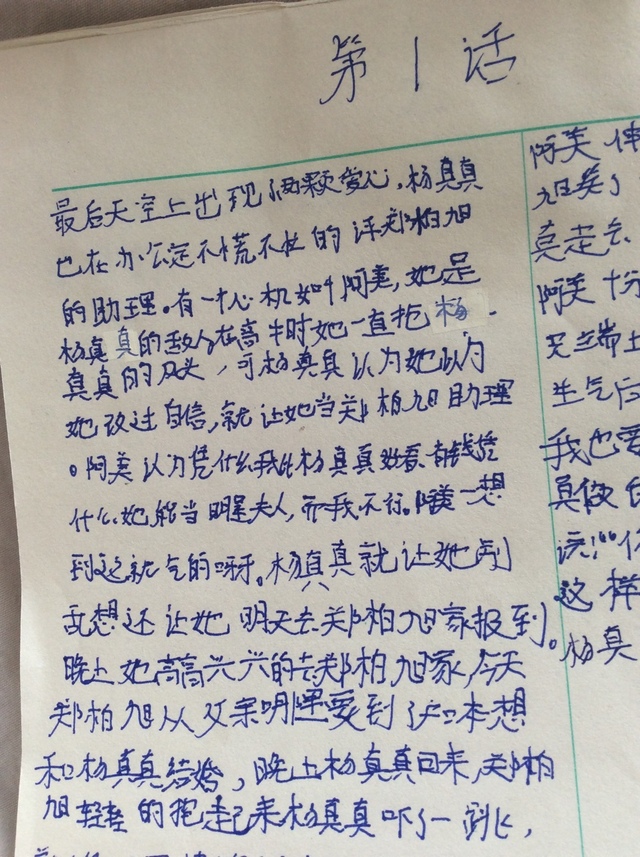 第1话
最后天空上出现两颗爱心，杨真真
也在办公定不慌不忙的 评郑柏旭
的助理。有一个心机如叫阿美，她是
杨真真的敌人在高中时她一直抢杨
真真的风头，可杨真真认为她以为
她改过自信，就让她当郑柏旭助理
。阿美认为凭什么我比杨真真好看、有钱凭
什么她能当明星夫人，而我不行。阿美一想
到这就气的呀。杨真真就让她别
乱想还让她明天去郑柏旭家报到。
晚上她高高兴兴的去郑柏旭家，今天
郑柏旭从父亲明星要到户口本想
和杨真真结婚，晚上杨真真回来，郑柏
旭轻轻的抱起来杨真真吓了一跳，
阿美伸
旭美了
真走去
阿美十分
兄端上
生气后
我也要
真做
该！“你
这样
杨真